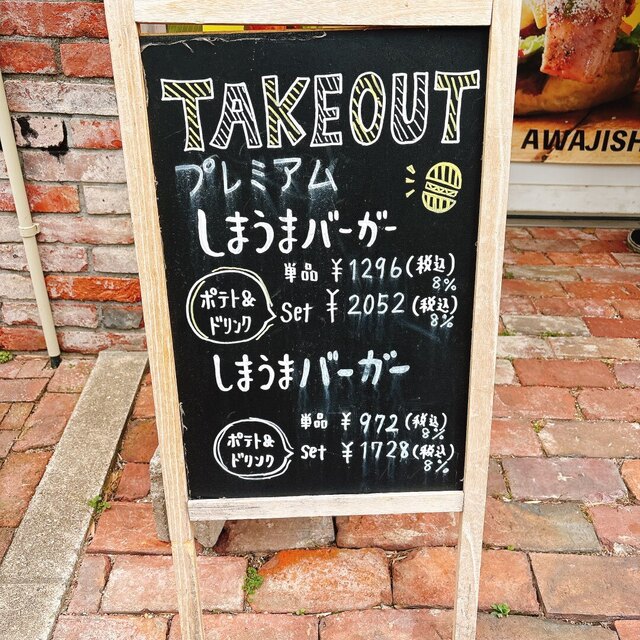 TAKEOUT
プレミアム
しまうまバーガー
単品 ¥1296(税込)
8%
ポテト&
ドリンク
Set ¥2052(税込)
8%
しまうまバーガー
単品 ¥972(税込)
8%
ポテト&
ドリンク
Set ¥1728(税込)
8%
AWAJISH